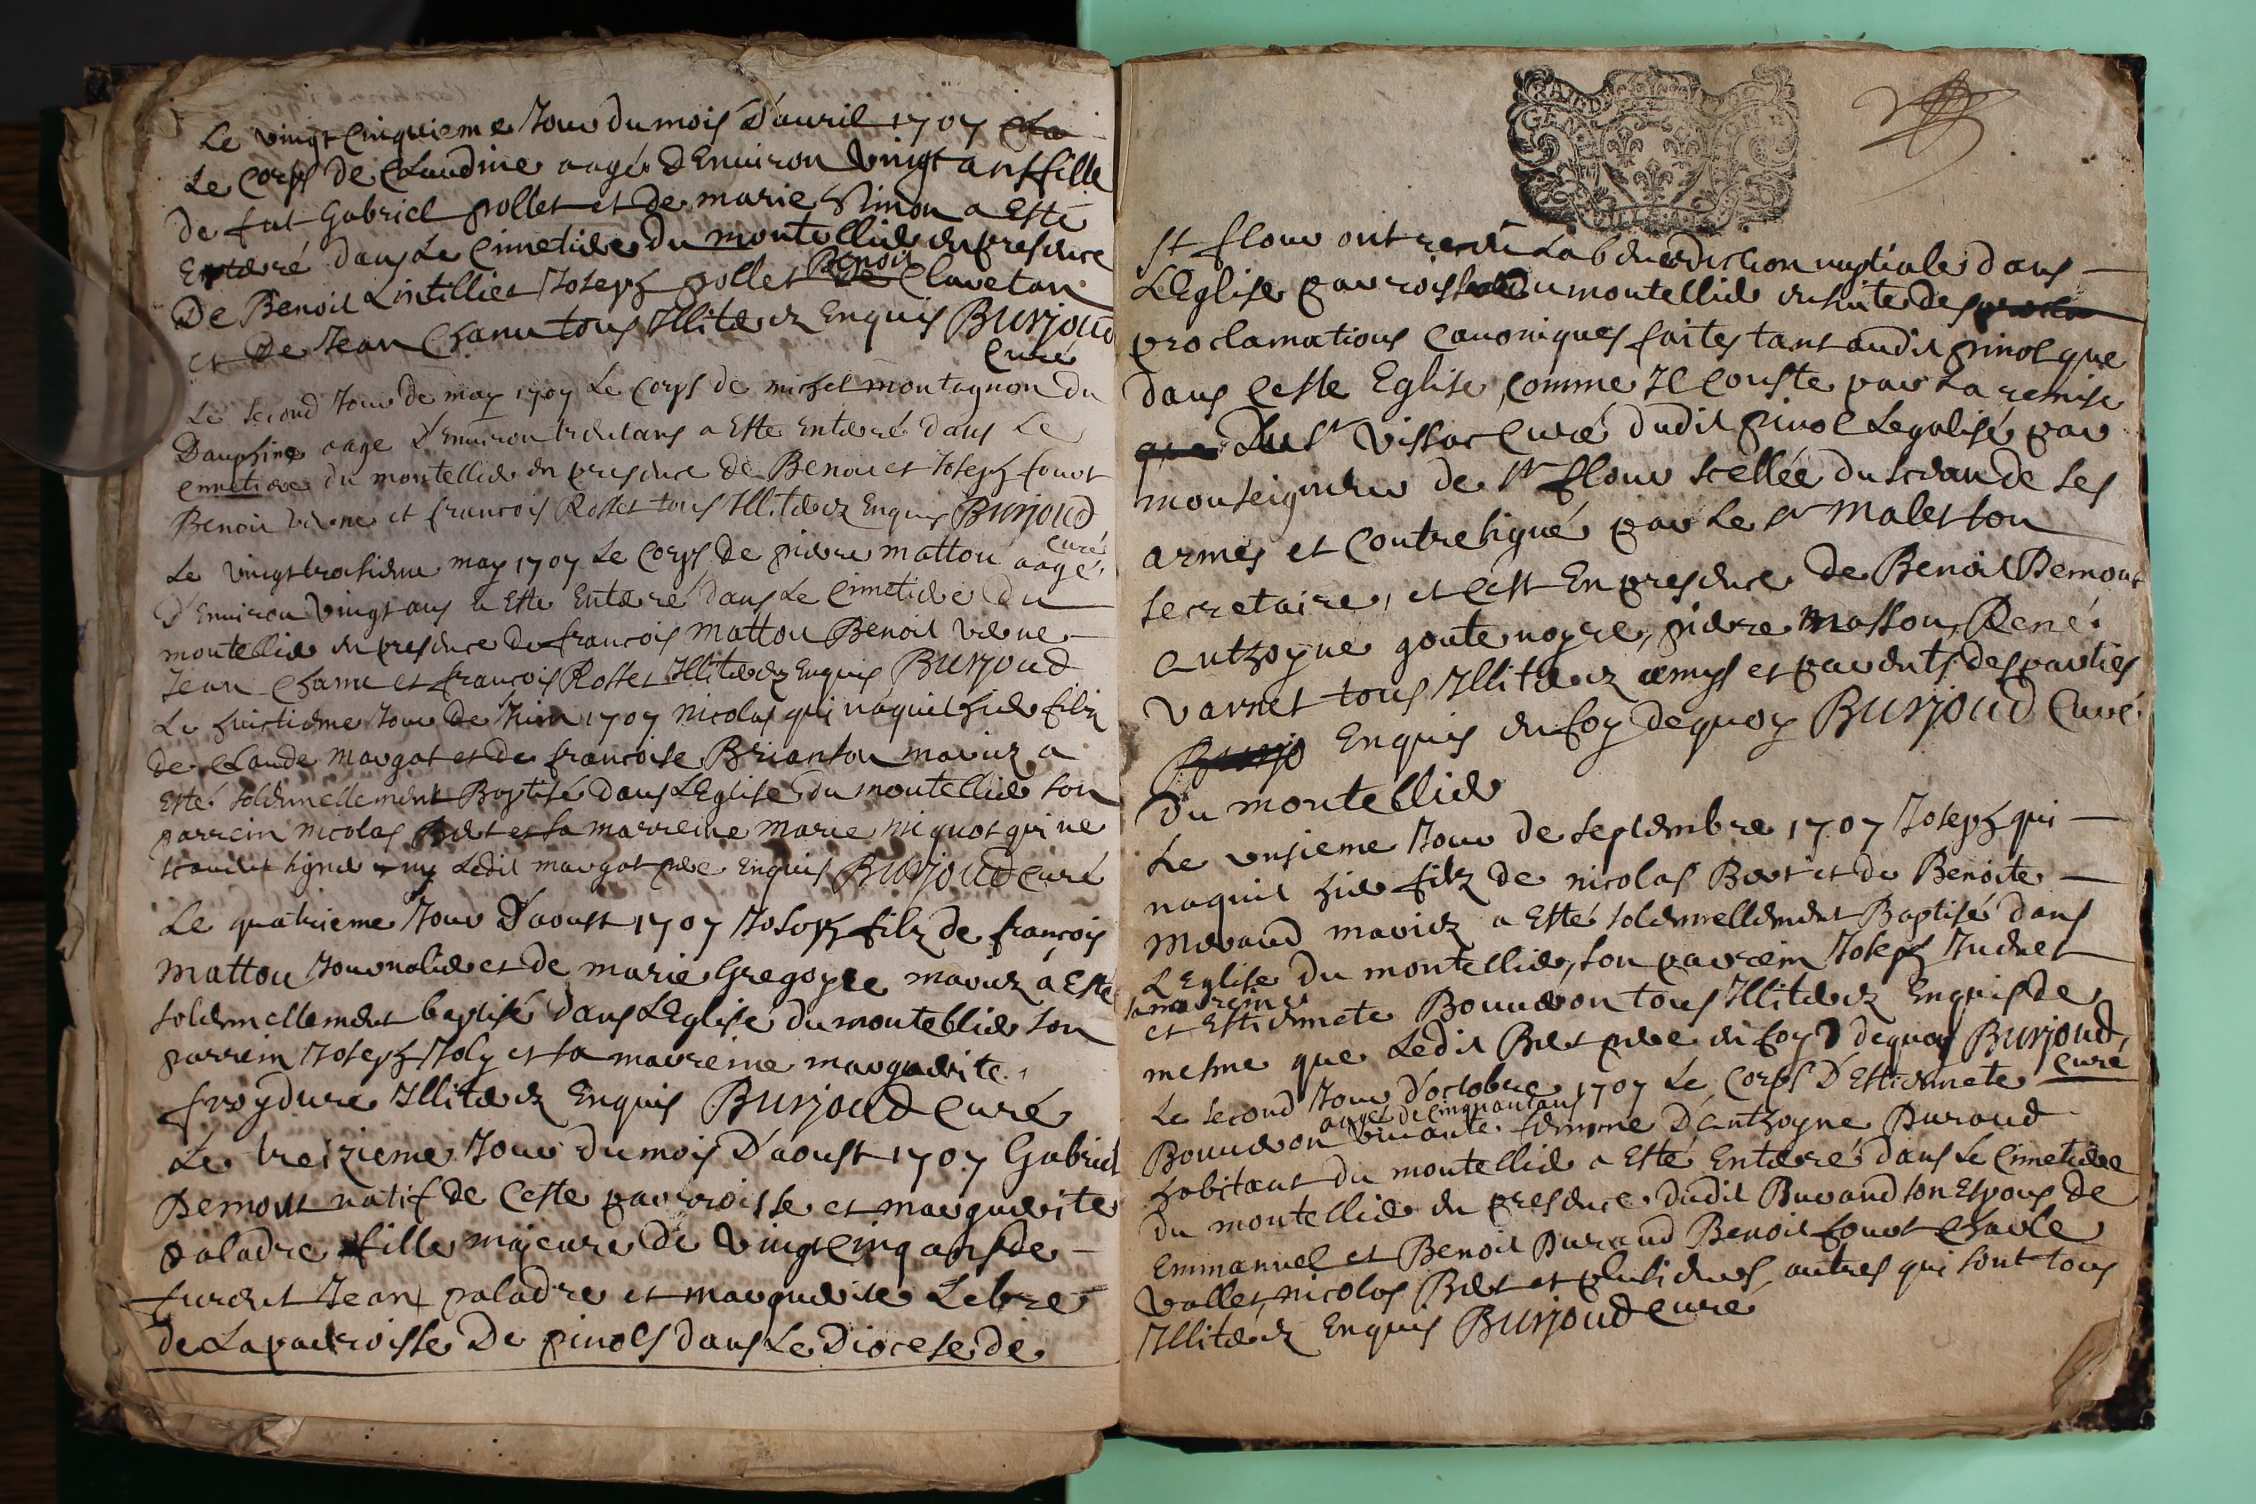 Le vingt cinquieme Jour du mois d'auril 1707
Le Corps de Claudine aagée d'Enuiron vingt ans fille
de fut Gabriel pollet et de marie Simon a Esté
Enterré dans Le Cimetiere du montellier en presence
De Benoit Lintillier Joseph pollet Benoit Clauetan
et De Jean Chanu tous Illiterez Enquis Burjoud
Curé
Le second Jour de may 1707 Le Corps de michel montagnon du
Dauphiné aage d'Enuiron trente ans a Esté Enterré dans Le
Cimetiere du montellier en presence de Benoit et Joseph fouot
Benoit verne et francois Rosset tous Illiterez Enquis Burjoud
curé
Le vingt troisieme may 1707 Le Corps de pierre mattou aagé
d'Enuiron vingt ans a Esté Enterré dans Le Cimetiere du
montellier en presence de francois mattou Benoit verne
Jean Chanu et francois Rosset Illiterez Enquis Burjoud
Le huictieme Jour de Juin 1707 nicolas qui náquit hier filz
de Claude margot et de francoise Brianson mariez a
Esté solennellement Baptisé dans L'Eglise du montellier son
parrein nicolas Bert et sa marreine marie miquot qui ne
scauent signer ny Ledit margot pere Enquis Burjoud Curé
Le quatrieme Jour d'aoust 1707 Joseph filz de francois
mattou Journalier et de marie Gregoyre mariez a Esté
solennellement baptisé dans L'Eglise du montellier son
parrein Joseph Joly et sa marreine marguerite
froydure Illiterez Enquis Burjoud Curé
Le treizieme Jour du mois D'aoust 1707 Gabriel
Demont natif de Ceste parroisse et marguerite
paladre fille majeure de vingt Cinq ans de
furent Jean paladre et marguerite Lebre
de La parroisse De pinols dans Le Diocese de
GEN
St flour ont receu La benediction nuptiale dans
L'Eglise parroissiale du montellier en suite des
proclamations Canoniques faites tant audit pinol que
dans Ceste Eglise, Comme Il Conste par La remise
du Sr vissac Curé dudit pinol Legalisé par
monseigneur de St flour scellée du sceau de ses
armes et Contresigné par Le Sr malet son
secretaire, et C'est En presence de Benoit Demont
anthoyne goutenoyre, pierre masson, René
varnet tous Illiterez amys et parents des parties
Enquis en foy dequoy Burjoud Curé
Du montellier
Le unsieme Jour de septembre 1707 Joseph qui
naquit hier filz de nicolas Bert et de Benoite
meraud mariez a Esté solennellement Baptisé dans
L'Eglise du montellier, son parrein Joseph Juenet
sa marreine
et Estiennete Bouueron tous Illiterez Enquis de
mesme que Ledit Bert pere en foy dequoy Burjoud
Curé
Le second Jour d'octobre 1707 Le Corps D'Estiennete
aagée de cinquante ans
Bouueron viuante femme D'anthoyne Duraud
habitant du montellier a Esté Enterré dans Le Cimetiere
du montellier en presence dudit Duraud son Espous de
Emmanuel et Benoit Duraud Benoit fouot Charle
vallet, nicolas Bert et plusieurs autres qui sont tous
Illiterez Enquis Burjoud Curé